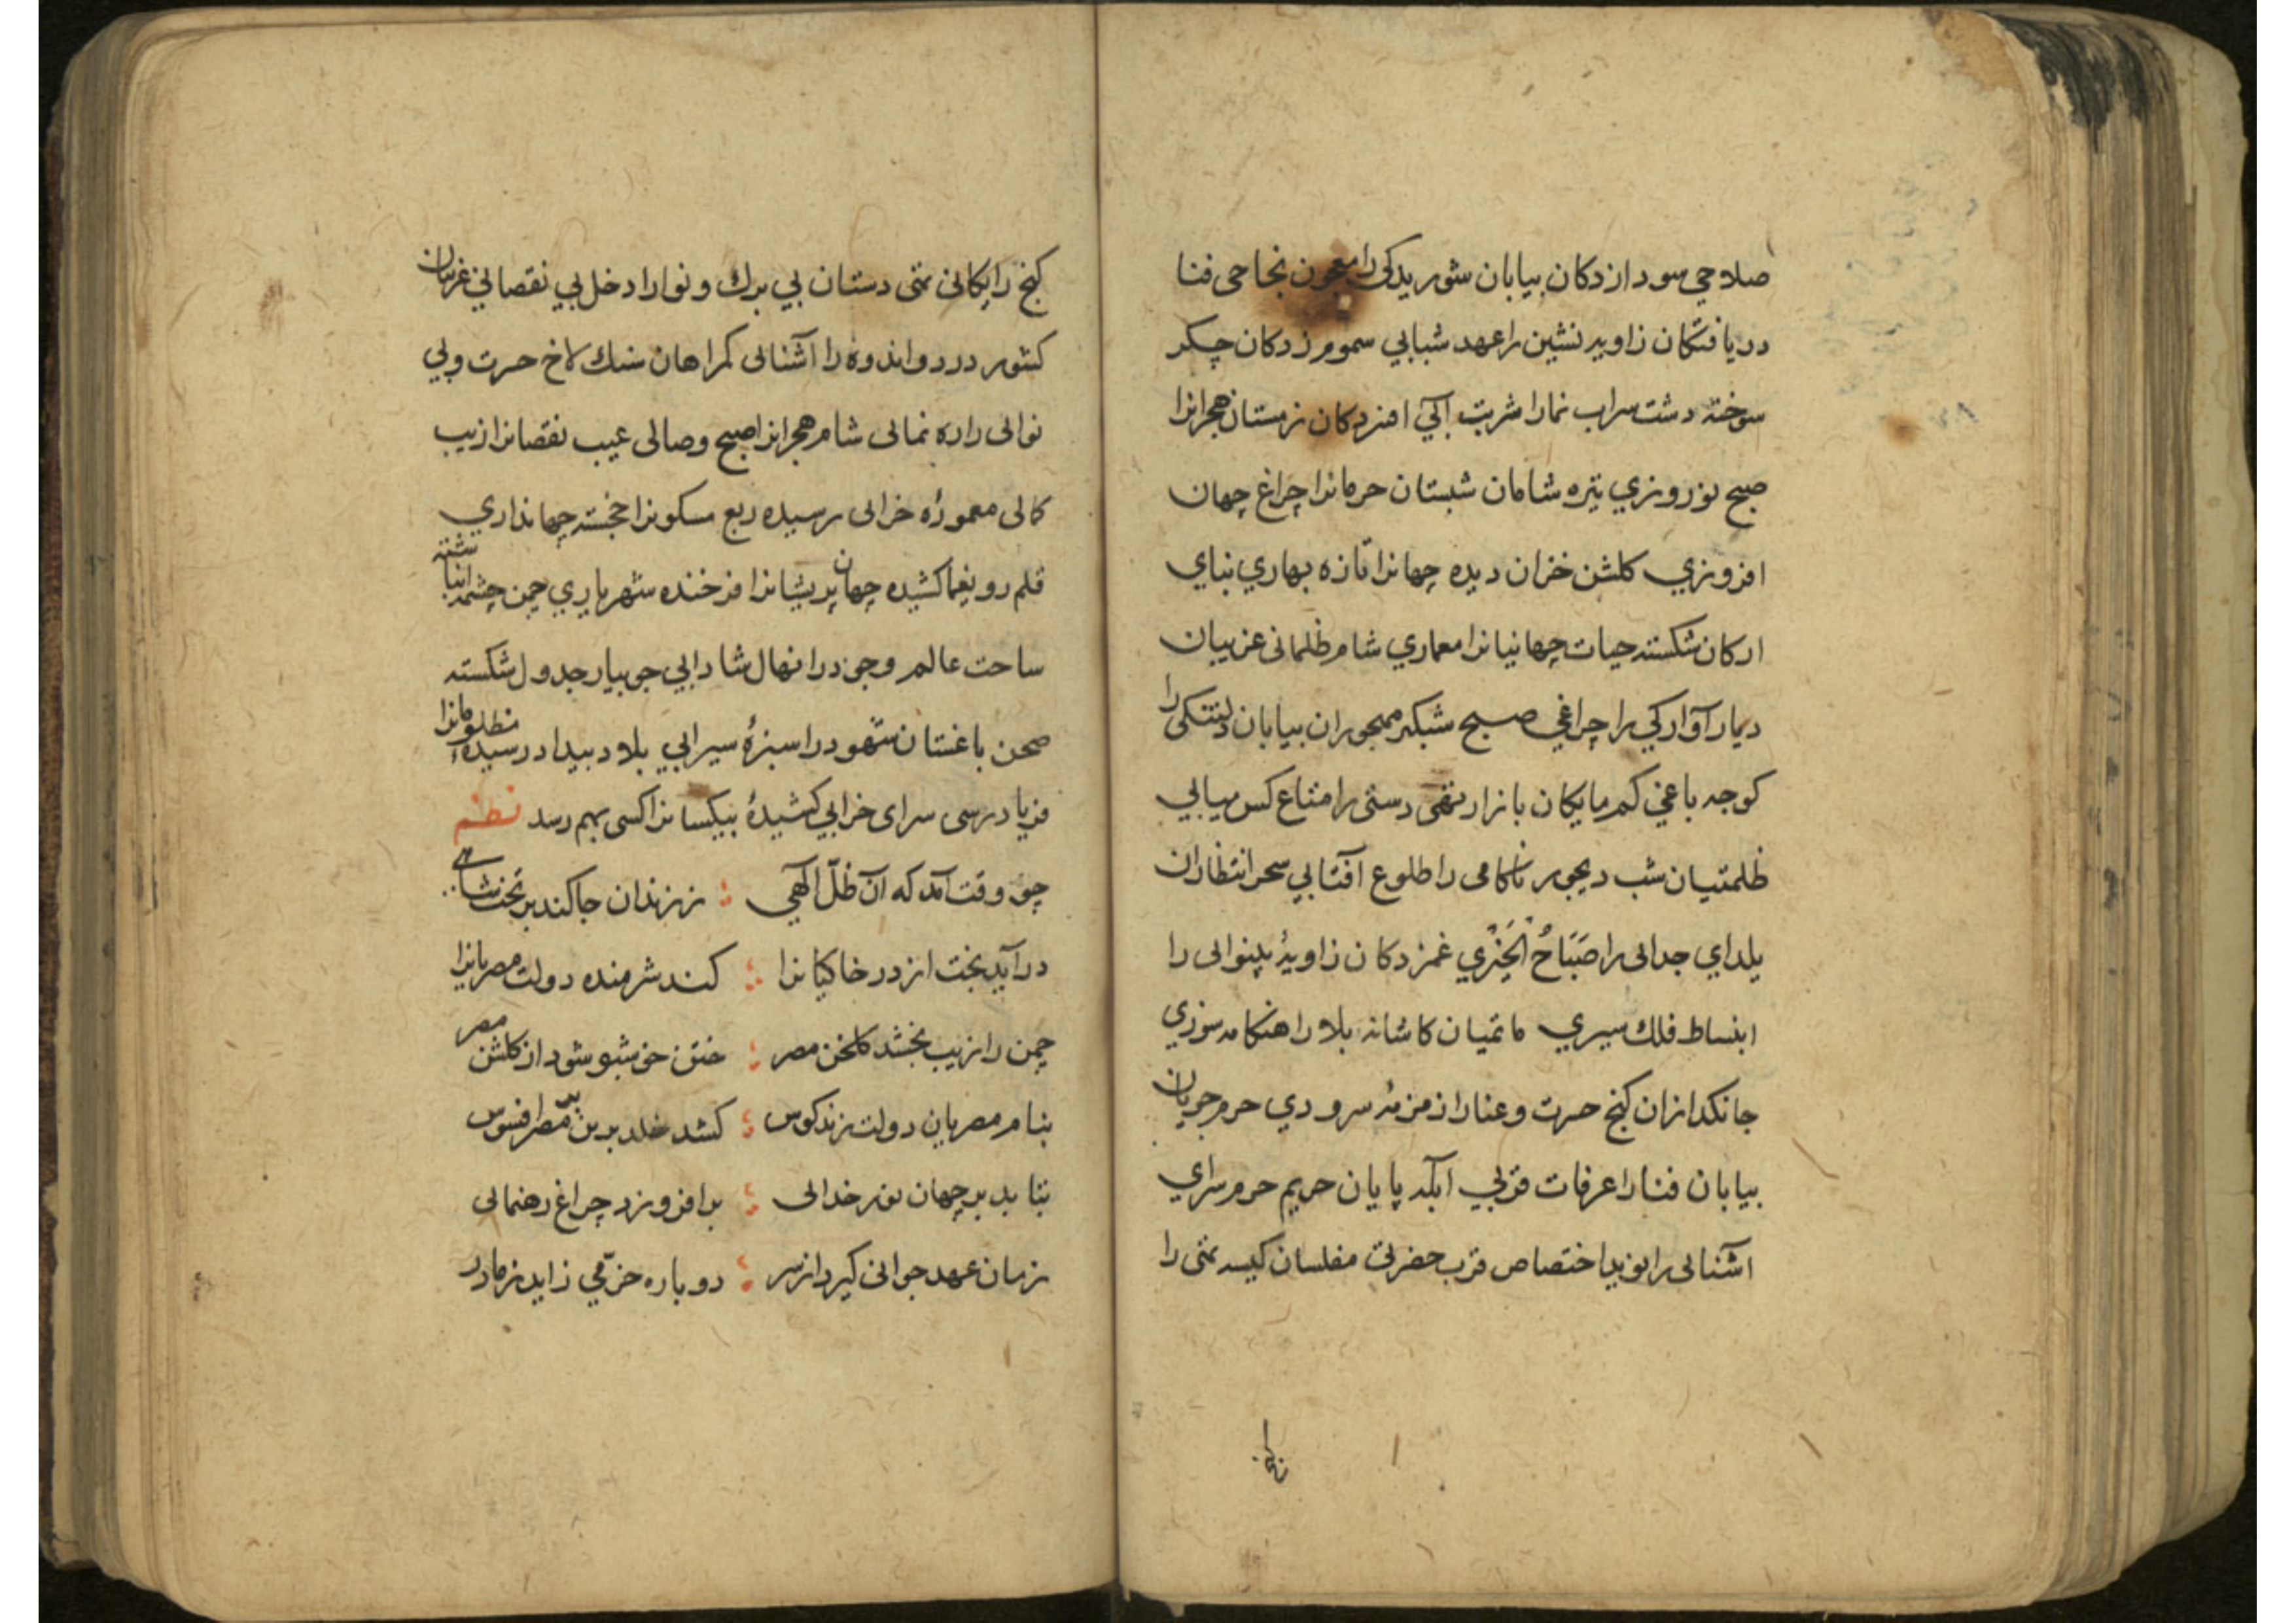 صلاحي سود ازدكان بيابان شوريدكى را معجون نجاحى فنا
دريافتكان زاويه نشين را عهد شبابي سموم زدكان جكر
سوخته دشت سراب نمارا شربت آبي افسردكان زمستان هجرانرا
صبح نوروزي تيره شامان شبستان حرمانرا چراغ جهان
افروزي كلشن خزان ديده جهانرا تازه بهاري بناي
اركان شكسته حيات جهانيانرا معماري شام ظلمانى غريبان
ديار آواركي را چراغي صبح شبكير مهجوران بيابان دلتنكى را
كوچه باغي كم مايكان بازار تهى دستى را متاع كس ميابي
ظلمتيان شب ديجور ناكامى را طلوع آفتابي سحر انتظاران
يلداي جدائى را صَبَاحُ الخَيْري غمزدكان زاويهٔ بينوائى را
انبساط فلك سيري ماتميان كاشانه بلا را هنكامه سوزي
جانكدازان كنج حسرت وعنارا زمزمهٔ سرودي حرم جويان
بيابان فنارا عرفات قربي آبله پايان حريم حرم سراي
اشنائى را نويد اختصاص قرب حضرتى مفلسان كيسه تهى را
كنج
كنج رايكانى تهى دستان بي برك ونوارا دخل بي نقصانى غريبان
كشور درد واندوه را آشنائى كمراهان سنك لاخ حسرت وبي
نوائى را ره نمائى شام هجرانرا صبح وصالى عيب نقصانرا زيب
كمالى معمورهٔ خرابى رسيده ربع مسكونرا خجسته جهانداري
قلم رو يغما كشيده جهان پريشانرا فرخنده شهرياري چمن چشمه انباشته
ساحت عالم وجودرا نهال شادابي جويبار جدول شكسته
صحن باغستان شهودرا سبزهٔ سيرابي بلاد بيداد رسيدهٔ مظلومانرا
فرياد رسى سراى خرابي كشيدهٔ بيكسانرا كسى بهم رسد نظم
چو وقت آمد كه آن ظلّ آلهي ؛ ز زندان جا كند بر تخت شاهى
درآيد بخت از در خاكيانرا ؛ كند شرمنده دولت مصريانرا
چمن را زيب بخشد كلخن مصر ؛ ختن خوشبو شود از كلشن مصر
بنام مصريان دولت زند كوس ؛ كشد خلد برين بر مصر افسوس
بتابد بر جهان نور خدائى ؛ برافروزد چراغ رهنمائى
زمان عهد جوانى كيرد از سر ؛ دوباره خرّمي زايد ز مادر